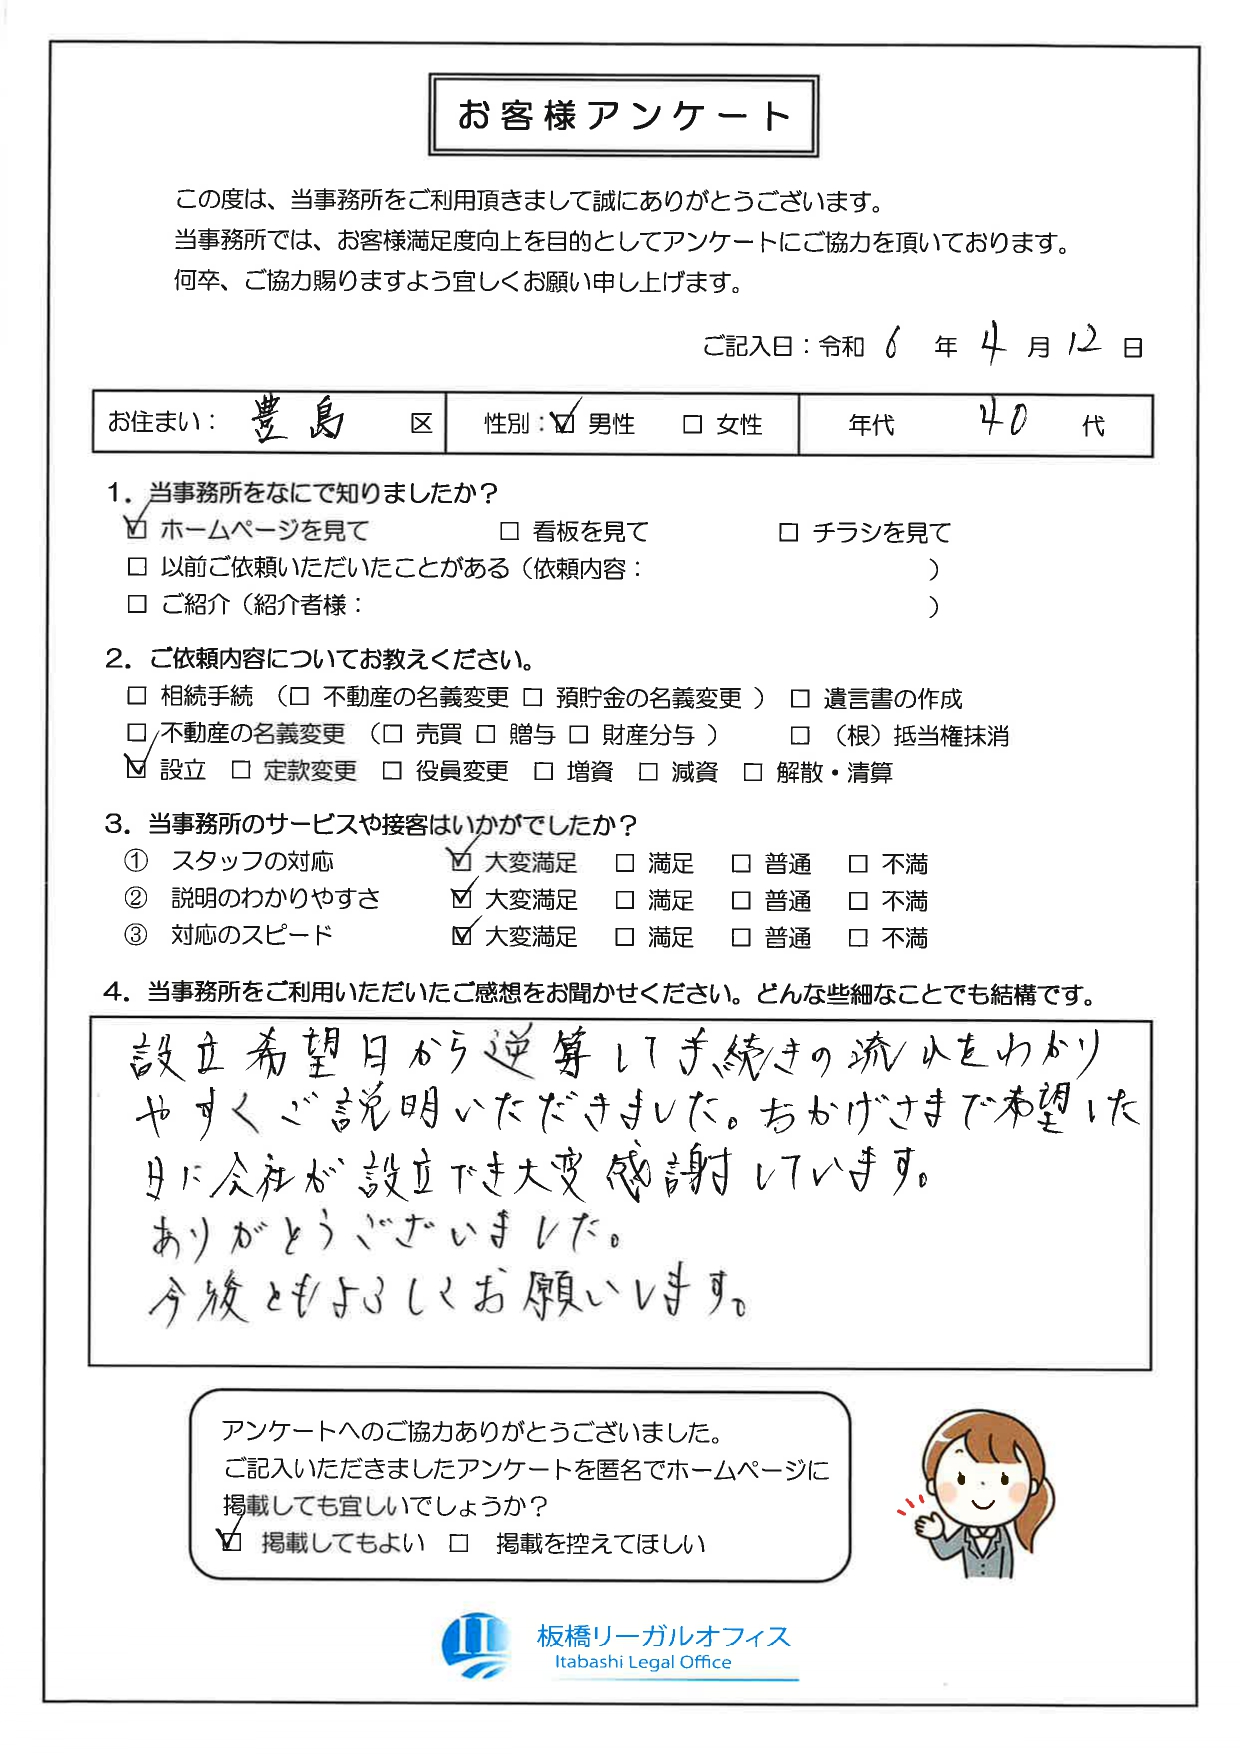 お客様アンケート
この度は、当事務所をご利用頂きまして誠にありがとうございます。
当事務所では、お客様満足度向上を目的としてアンケートにご協力を頂いております。
何卒、ご協力賜りますよう宜しくお願い申し上げます。
ご記入日：令和 6 年 4 月 12 日
お住まい： 豊島 区 性別：☑ 男性 □ 女性 年代 40 代
1．当事務所をなにで知りましたか？
☑ ホームページを見て □ 看板を見て □ チラシを見て
□ 以前ご依頼いただいたことがある（依頼内容： ）
□ ご紹介（紹介者様： ）
2．ご依頼内容についてお教えください。
□ 相続手続 （□ 不動産の名義変更 □ 預貯金の名義変更 ） □ 遺言書の作成
□ 不動産の名義変更 （□ 売買 □ 贈与 □ 財産分与 ） □ （根）抵当権抹消
☑ 設立 □ 定款変更 □ 役員変更 □ 増資 □ 減資 □ 解散・清算
3．当事務所のサービスや接客はいかがでしたか？
① スタッフの対応 ☑ 大変満足 □ 満足 □ 普通 □ 不満
② 説明のわかりやすさ ☑ 大変満足 □ 満足 □ 普通 □ 不満
③ 対応のスピード ☑ 大変満足 □ 満足 □ 普通 □ 不満
4．当事務所をご利用いただいたご感想をお聞かせください。どんな些細なことでも結構です。
設立希望日から逆算して手続きの流れをわかり
やすくご説明いただきました。おかげさまで希望した
日に会社が設立でき大変感謝しています。
ありがとうございました。
今後ともよろしくお願いします。
アンケートへのご協力ありがとうございました。
ご記入いただきましたアンケートを匿名でホームページに
掲載しても宜しいでしょうか？
☑ 掲載してもよい □ 掲載を控えてほしい
板橋リーガルオフィス
Itabashi Legal Office